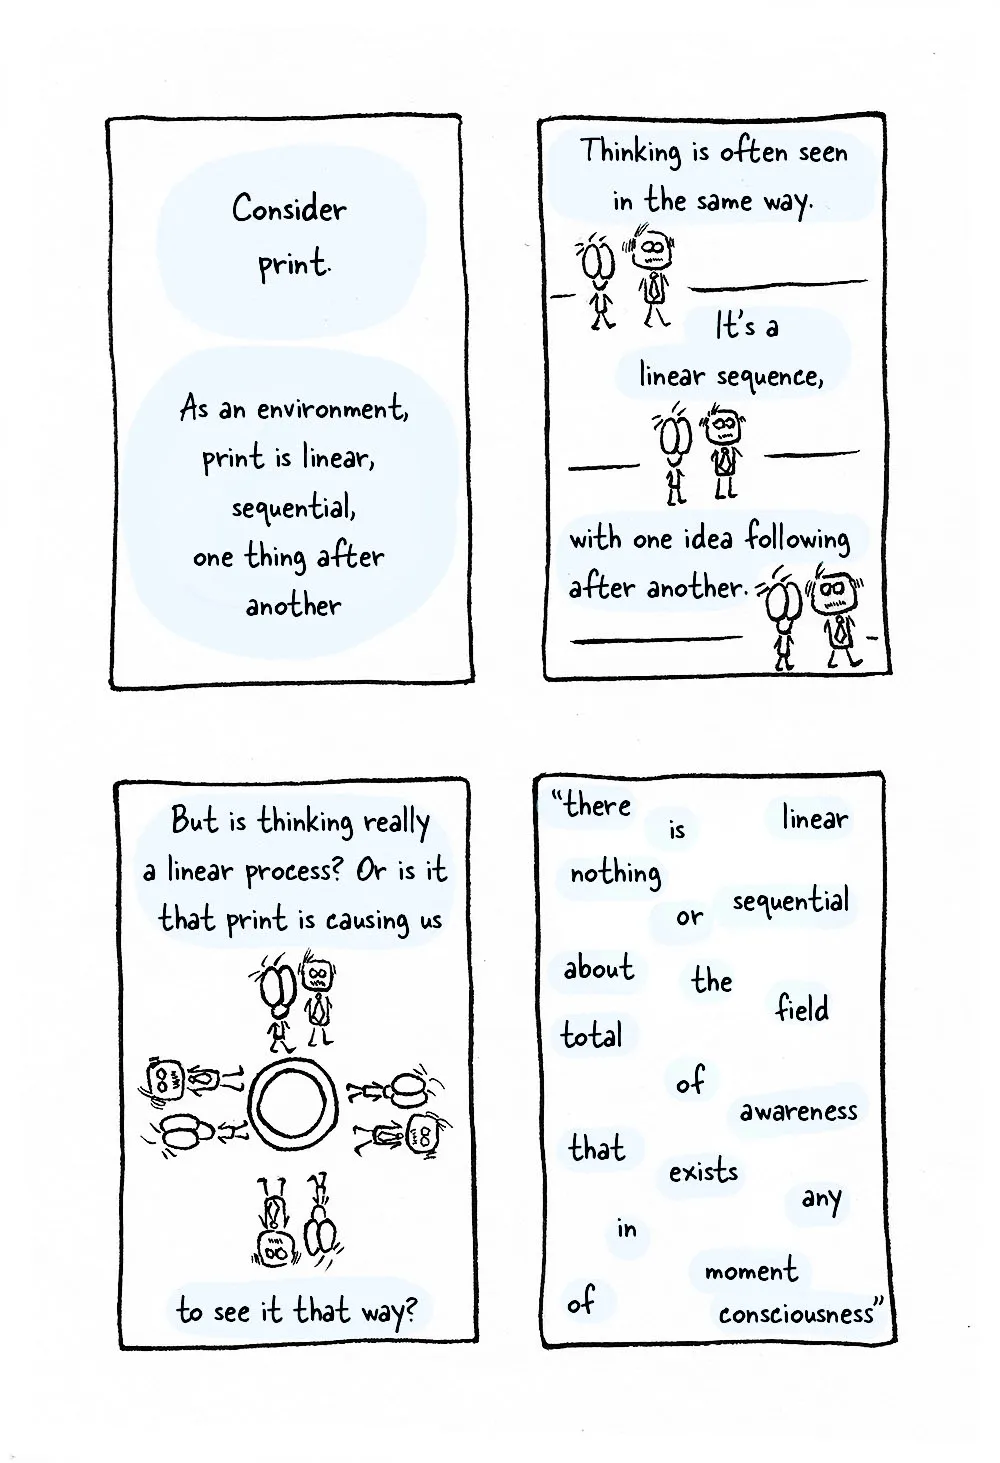 Consider
print.
As an environment,
print is linear,
sequential,
one thing after
another
Thinking is often seen
in the same way.
It's a
linear sequence,
with one idea following
after another.
But is thinking really
a linear process? Or is it
that print is causing us
to see it that way?
"there is linear
nothing or sequential
about the field
total of awareness
that exists any
in moment
of consciousness"